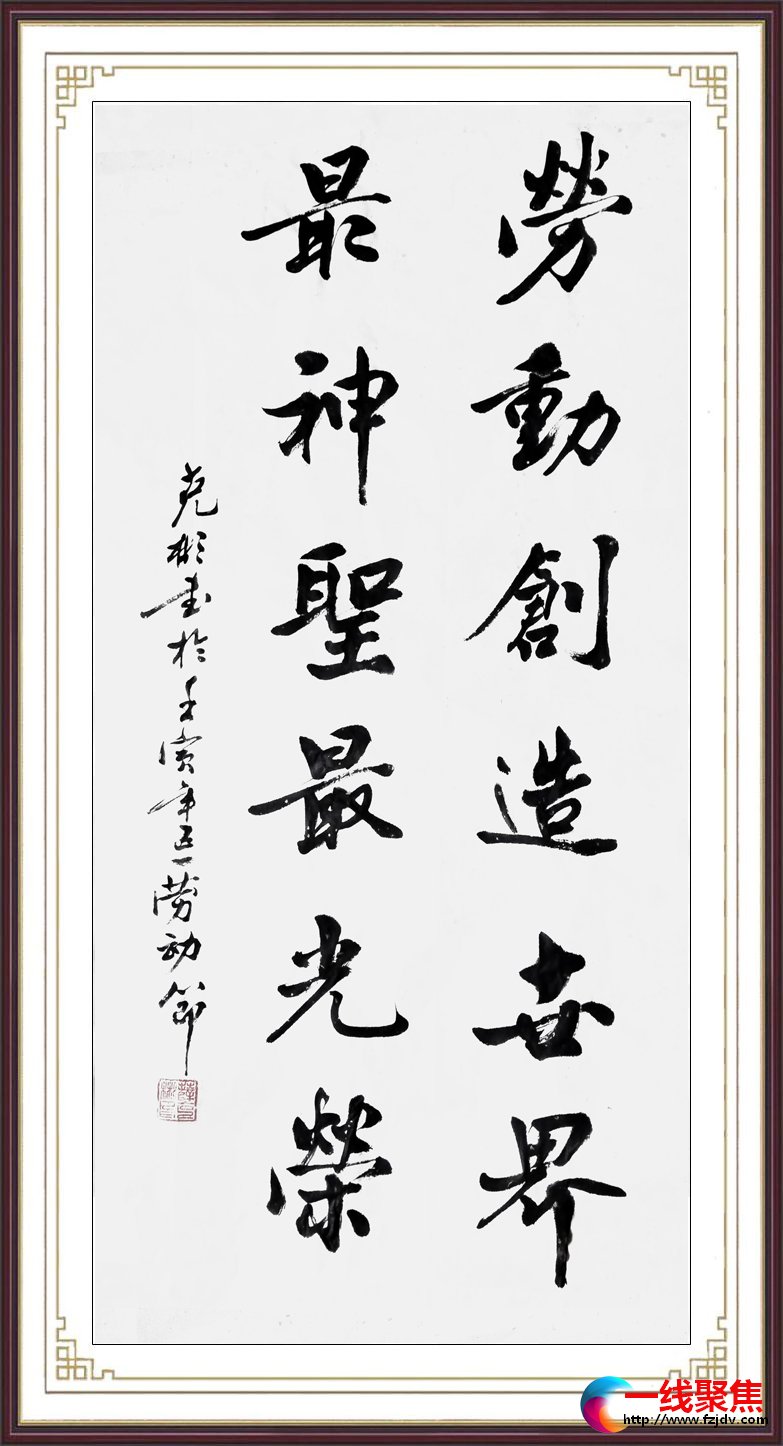 勞動創造世界
最神聖最光榮
尭彬书於壬寅年五一劳动節
一线聚焦
http://www.fzjdv.com